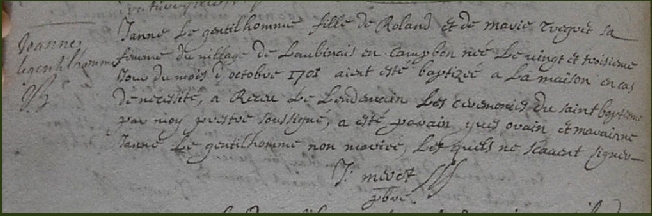 Jeanne
legentilhomme
Janne Le gentilhomme fille de Roland et de marie Tregret sa
femme du village de Laubinais en Campbon née Le vingt et troisieme
Jour du mois d'octobre 1701 aient esté baptizée a La maison en cas
de necessité, a Receu Le Lendemain Les ceremonies du saint baptesme
par moy prestre soussigné, a esté parain yves ovain et maraine
Janne Le gentilhomme non mariée, Lesquels ne scavent signer
J: mevet
pbre.